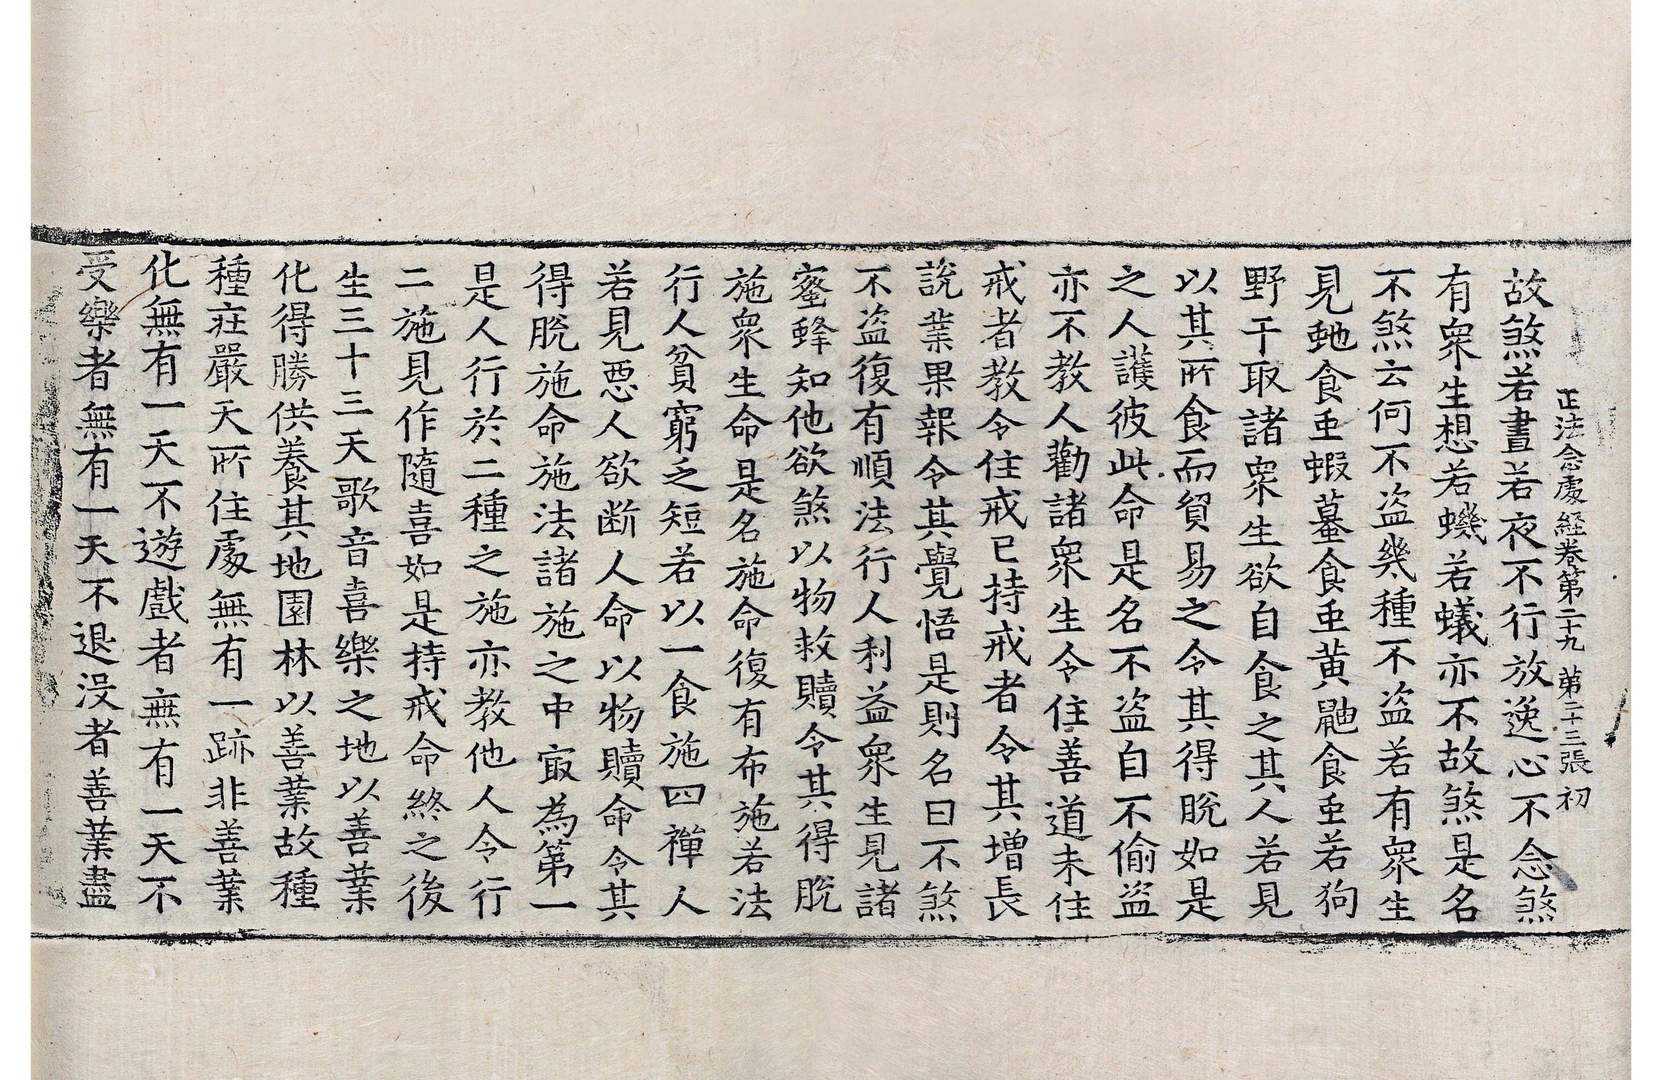 正法念處経卷第二十九 第二十三張 初
故煞若晝若夜不行放逸心不念煞
有衆生想若蟣若蟻亦不故煞是名
不煞云何不盜幾種不盜若有衆生
見虵食䖝蝦蟇食䖝黄鼬食䖝若狗
野干取諸衆生欲自食之其人若見
以其所食而貿易之令其得脫如是
之人護彼此命是名不盜自不偷盜
亦不教人勸諸衆生令住善道未住
戒者教令住戒已持戒者令其增長
說業果報令其覺悟是則名曰不煞
不盜復有順法行人利益衆生見諸
蜜蜂知他欲煞以物救贖令其得脫
施衆生命是名施命復有布施若法
行人貧窮乏短若以一食施四禪人
若見惡人欲断人命以物贖命令其
得脫施命施法諸施之中㝡為第一
是人行於二種之施亦教他人令行
二施見作隨喜如是持戒命終之後
生三十三天歌音喜樂之地以善業
化得勝供養其地園林以善業故種
種莊嚴天所住處無有一跡非善業
化無有一天不遊戲者無有一天不
受樂者無有一天不退没者善業盡